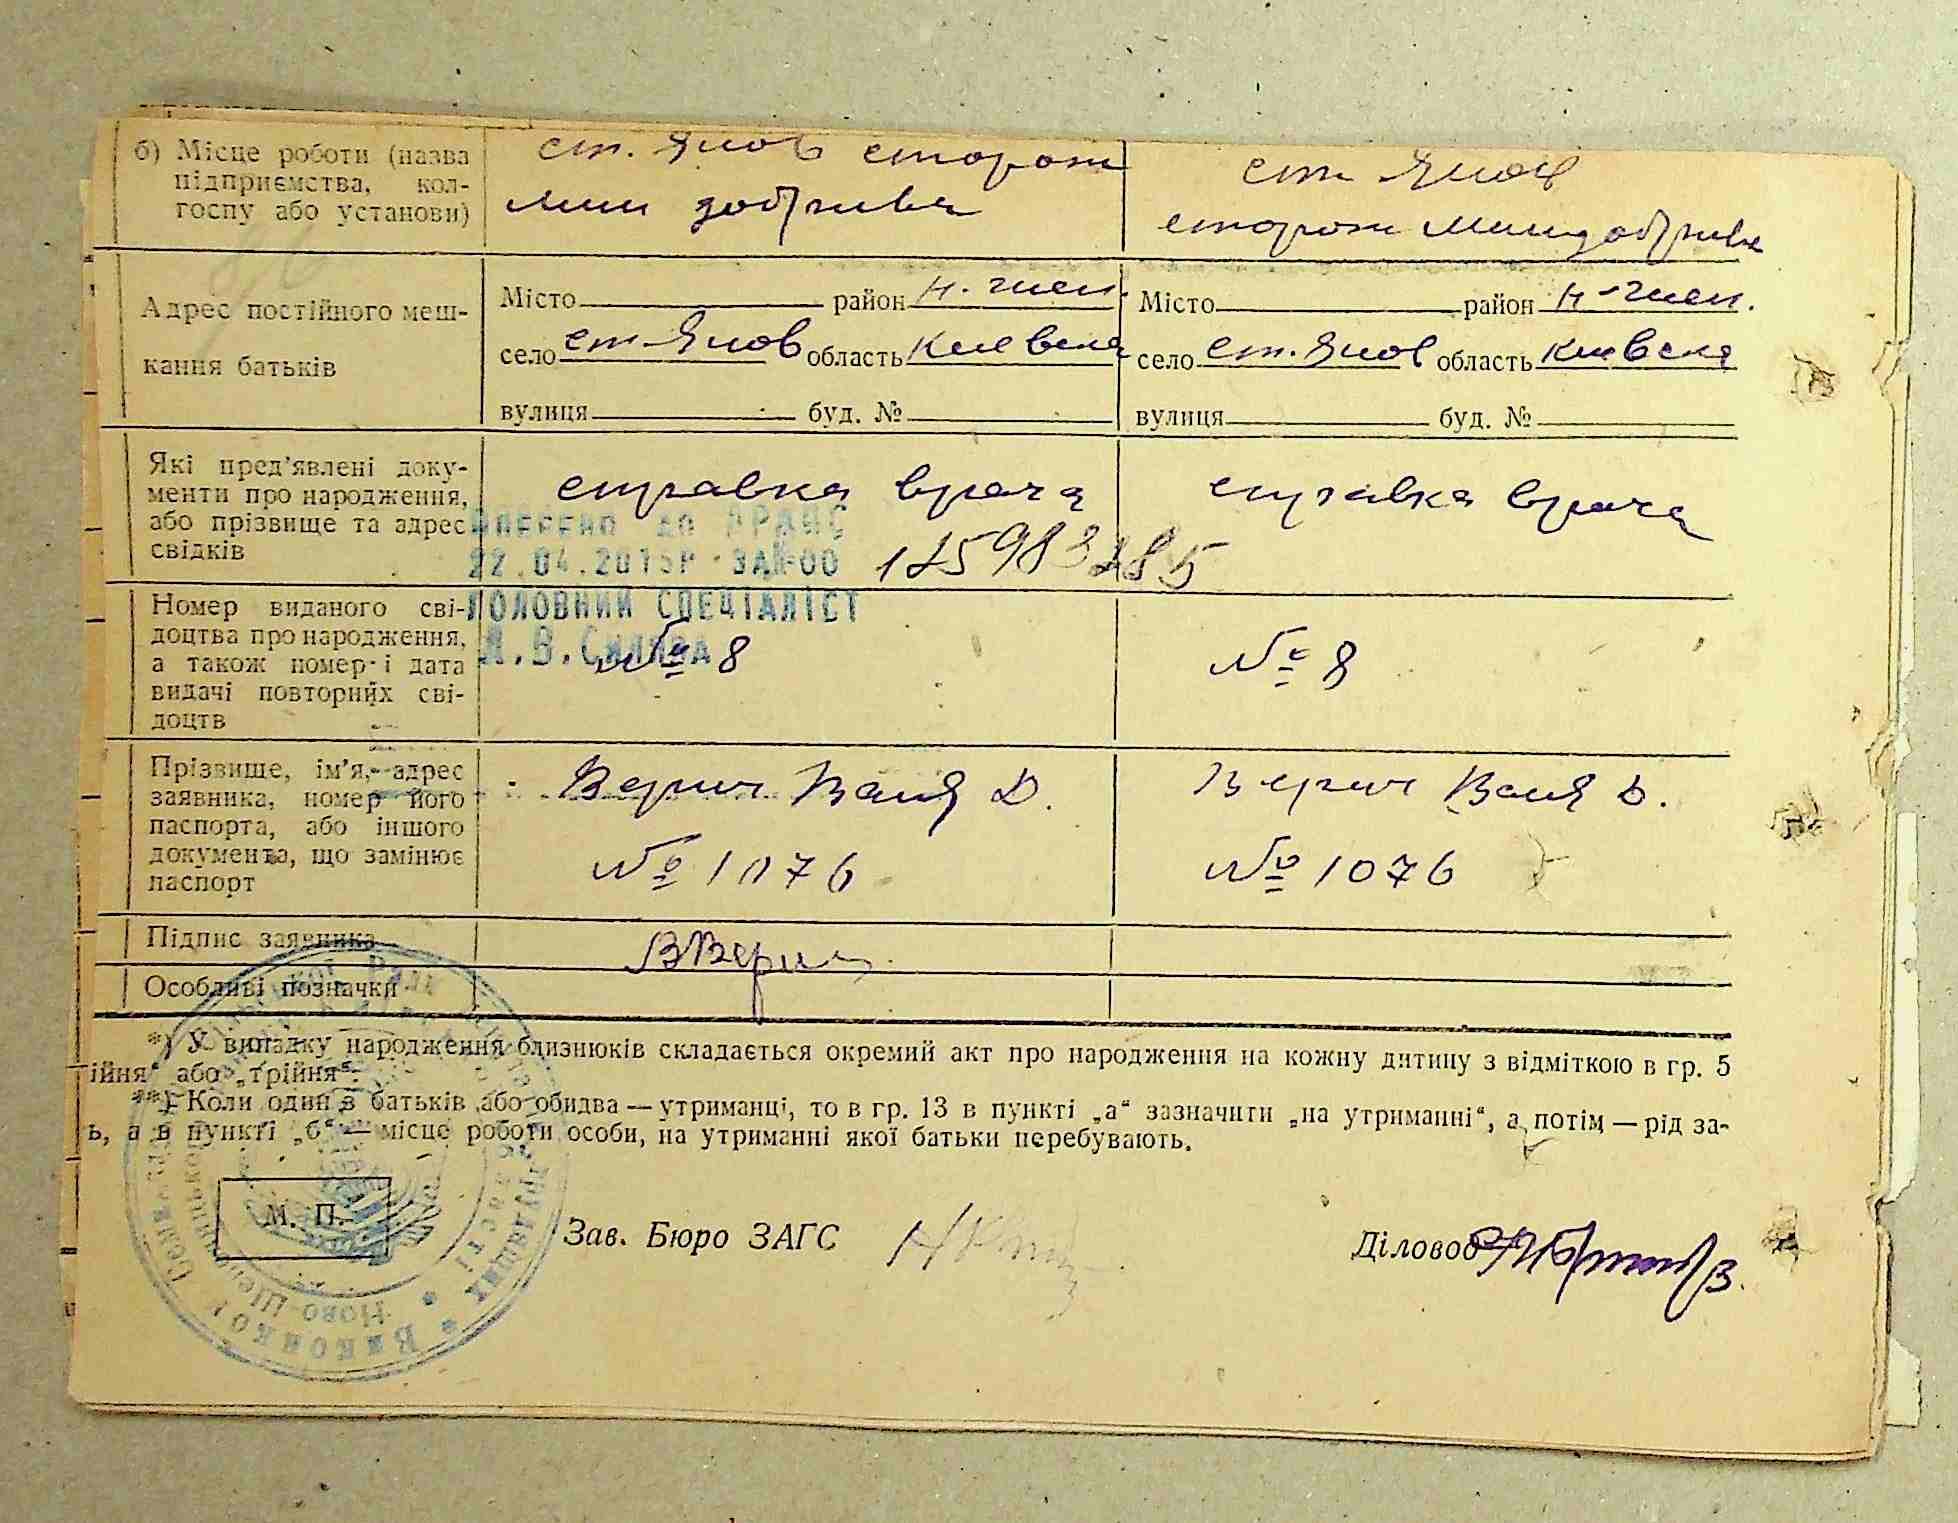 б) Місце роботи (назва
підприємства, кол-
госпу або установи)
ст. Янов сторож
мин добрива
ст Янов
сторож Миндобрива
Адрес постійного меш-
кання батьків
Місто район н. шеп.
село ст. Янов область киевска
вулиця буд. №
Місто район н-шеп.
село ст. Янов область киевска
вулиця буд. №
Які пред'явлені доку-
менти про народження,
або прізвище та адрес
свідків
справка врача
справка врача
до ДРАЦС
22.04.2015р
ГОЛОВНИЙ СПЕЦІАЛІСТ
Номер виданого сві-
доцтва про народження,
а також номер і дата
видачі повторних сві-
доцтв
№ 8
№ 8
Прізвище, ім'я, адрес
заявника, номер його
паспорта, або іншого
документа, що замінює
паспорт
Верич Ваня Д.
№ 1076
Верич Ваня Д.
№ 1076
Підпис заявника
ВВерич
Особливі позначки
*) У випадку народження близнюків складається окремий акт про народження на кожну дитину з відміткою в гр. 5
ійня“ або „трійня“.
**) Коли один з батьків або обидва — утриманці, то в гр. 13 в пункті „а“ зазначити „на утриманні“, а потім — рід за-
ь, а в пункті „б“ — місце роботи особи, на утриманні якої батьки перебувають.
М. П.
Зав. Бюро ЗАГС
Діловод